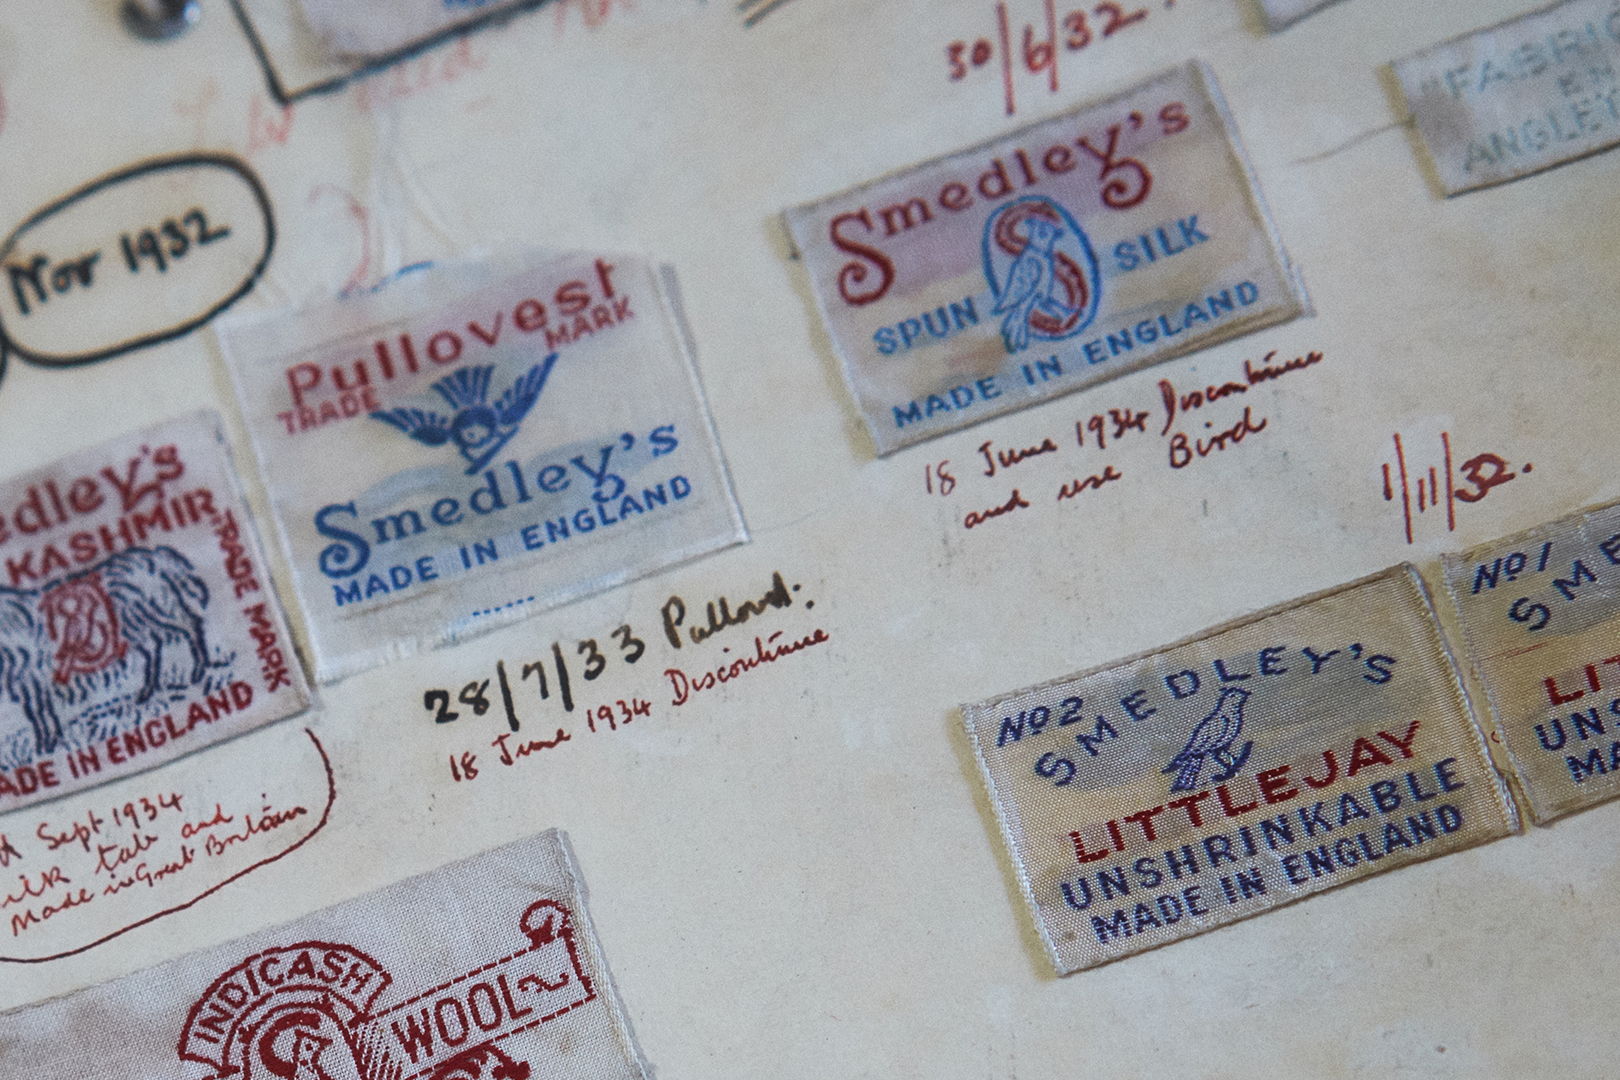 30/6/32.
"FABRIQ
EN
ANGLET
Smedley's
SPUN SILK
MADE IN ENGLAND
18 June 1934 Discontinue
and use Bird
Nov 1932
Pullovest
TRADE MARK
Smedley's
MADE IN ENGLAND
28/7/33 Pullovest.
18 June 1934 Discontinue
edley's
KASHMIR
TRADE MARK
ADE IN ENGLAND
Sept 1934
tab and
Made in Great Britain
1/11/32.
No 2
SMEDLEY'S
LITTLEJAY
UNSHRINKABLE
MADE IN ENGLAND
No 1
SME
LIT
UNS
MA
INDICASH
WOOL